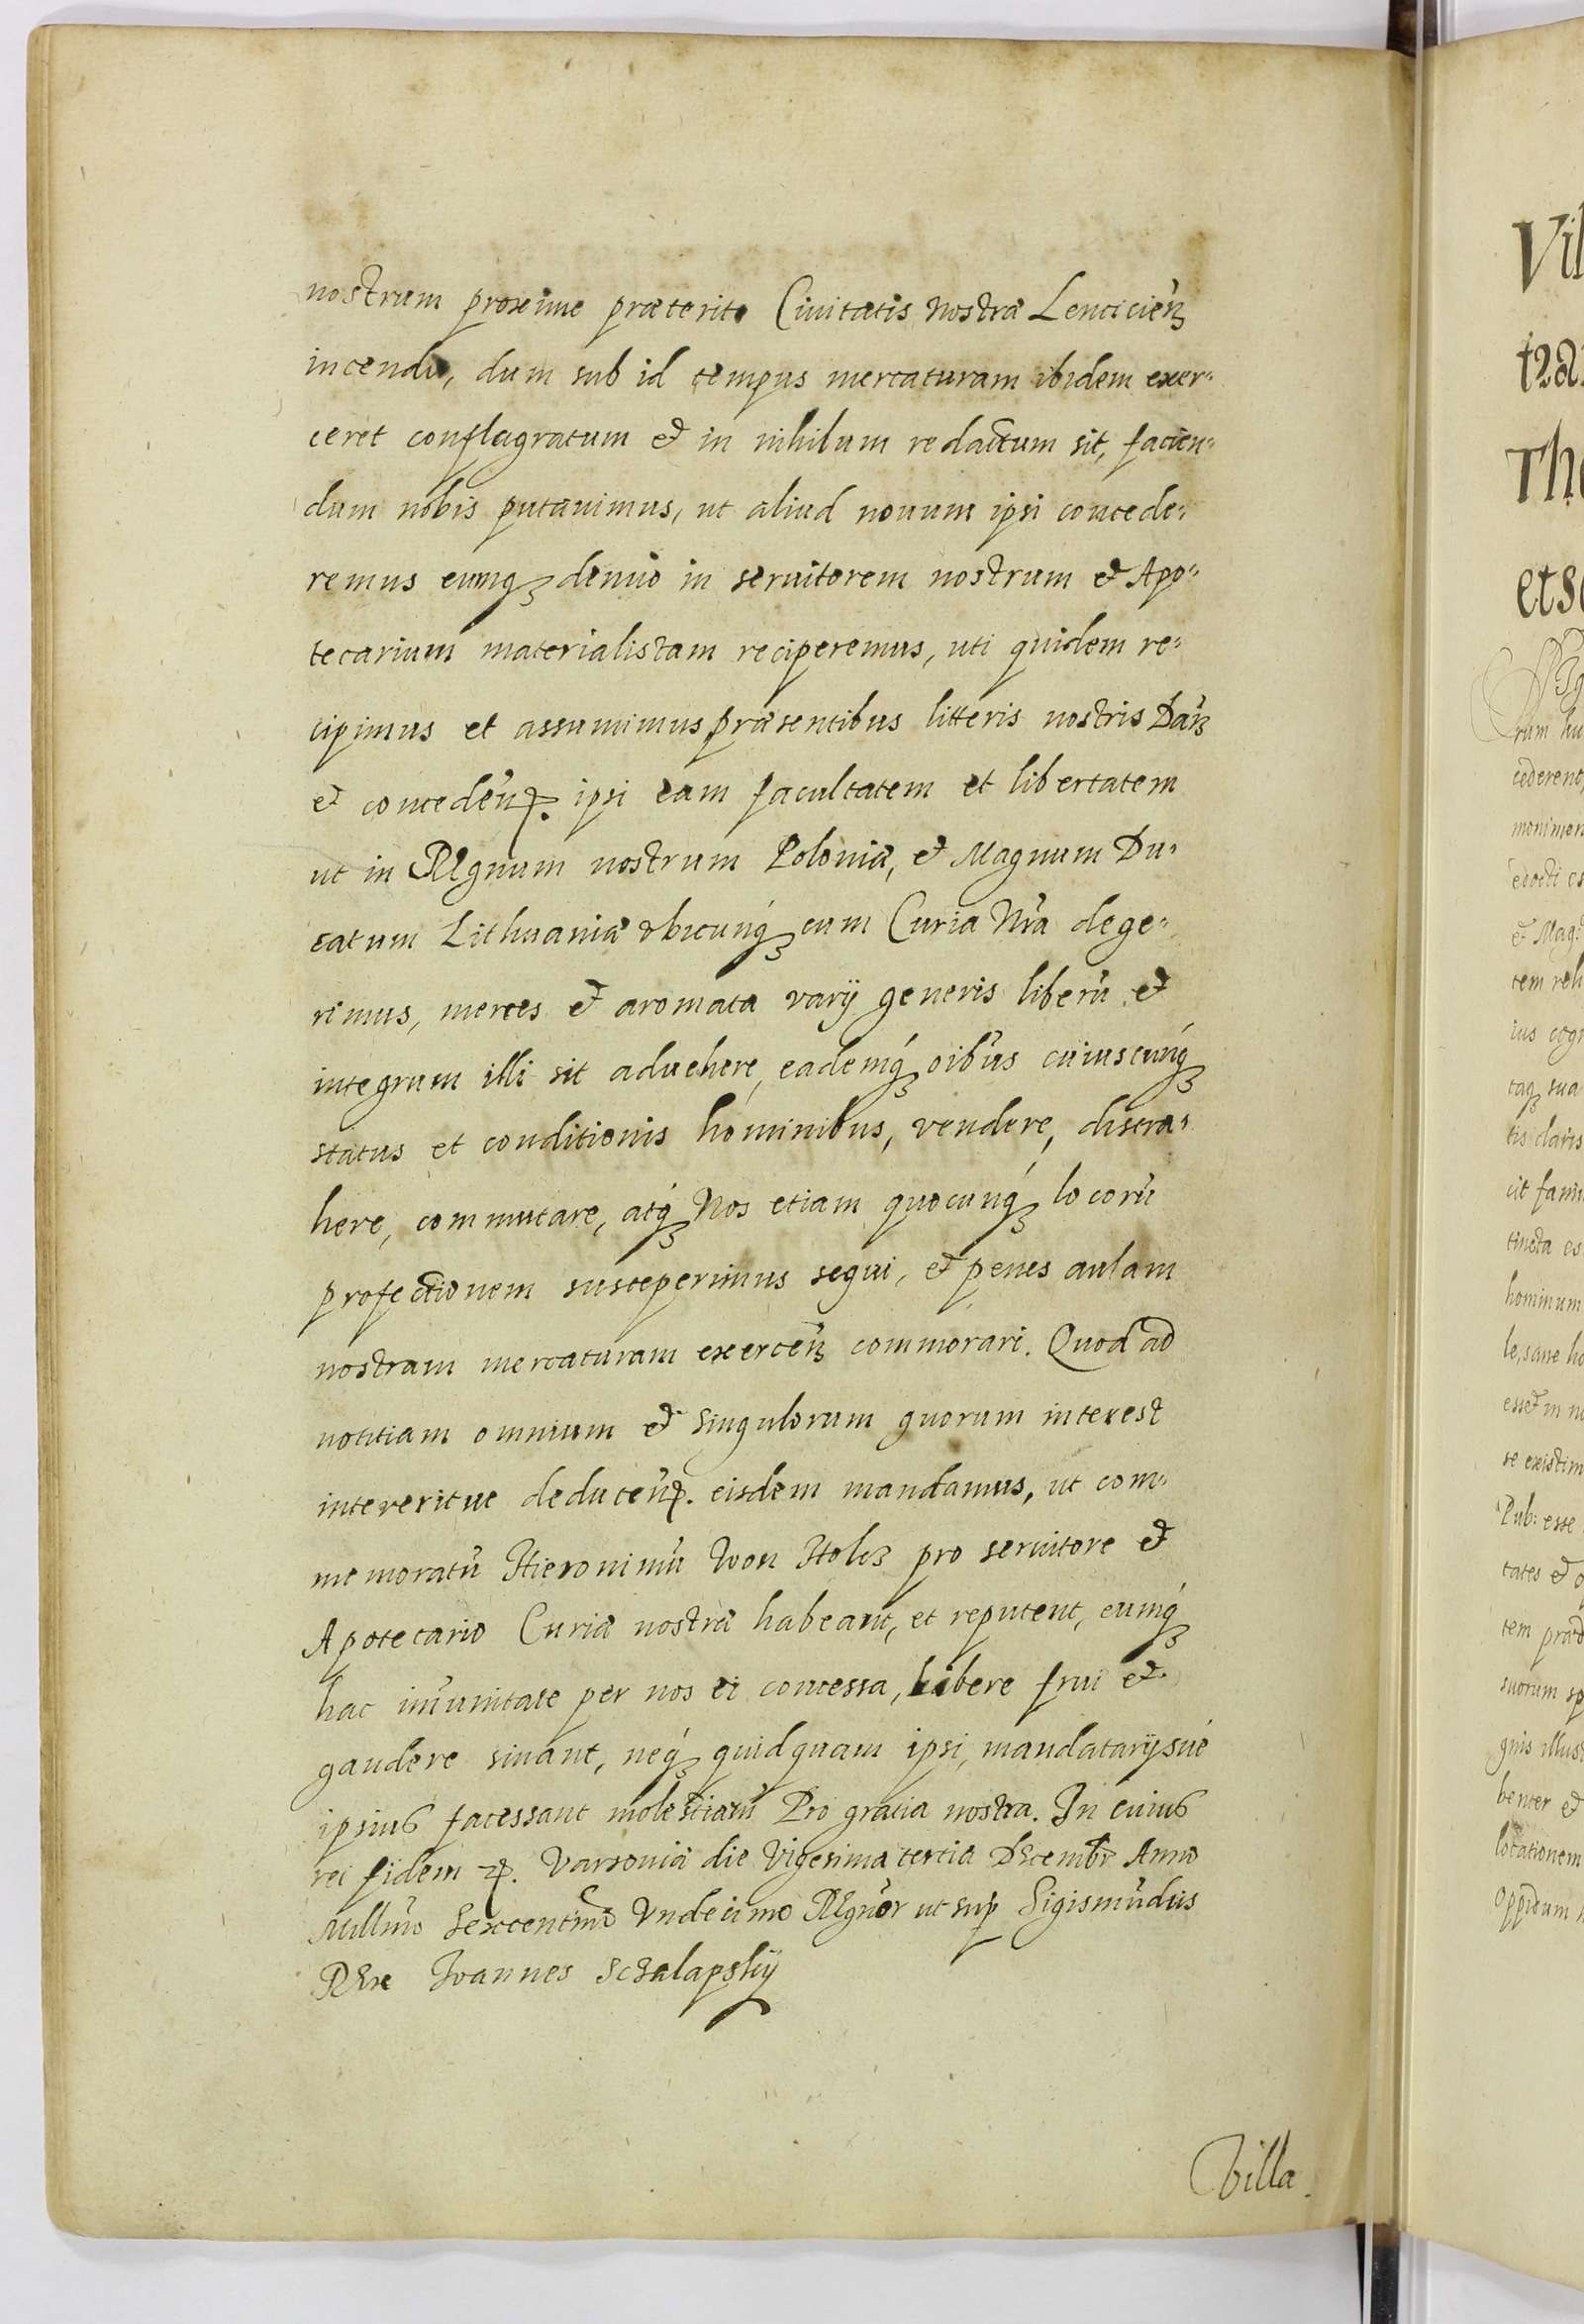 nostrum proxime præterito Ciuitatis nostræ Lenciciens̃
incendio, dum sub id tempus mercaturam ibidem exer-
ceret conflagratum et in nihilum redactum sit, facien-
dum nobis putauimus, ut aliud nouum ipsi concede-
remus eumqꝫ denuo in seruitorem nostrum et Apo-
tecarium materialistam reciperemus, uti quidem re-
cipimus et assumimus præsentibus litteris nostris Dañꝫ
et conceden̄. ipsi eam facultatem et libertatem
ut in Regnum nostrum Poloniæ, et Magnum Du-
catum Lithuaniæ vbicunqꝫ cum Curia Nr̃a dege-
rimus, merces et aromata varij generis liberũ et
integrum illi sit aduehere, eademqꝫ oĩbus cuiuscunqꝫ
status et conditionis hominibus, vendere, distra-
here, commutare, atqꝫ Nos etiam quocunqꝫ locorũ
profectionem susceperimus sequi, et penes aulam
nostram mercaturam exercen̄ꝫ commorari. Quod ad
notitiam omnium et singulorum quorum interest
intereritue deducen̄. eisdem mandamus, ut com-
memoratũ Hieronimũ Won Holcꝫ pro seruitore et
Apotecario Curiæ nostræ habeant, et reputent, eumqꝫ
hac im̃unitate per nos ei concessa, libere frui et
gaudere sinant, neqꝫ quidquam ipsi, mandatarijsue
ipsius facessant molestiarũ Pro gratia nostra. In cuius
rei fidem ꝛ. Varsouiæ die Vigesima tertia Decembr̃ Anno
Millmo Sexcentmo Vndecimo Regnor̃ ut sup̱ Sigismũdus
Rex Ioannes Schalapskij
Villa
Vil
The
rum hu
cederent,
monimen
edocti es
et Mag:
tem reli
ius cog
taqꝫ sua
tis claris
cit fami
tincta es
hominum
le, sane ho
esset in n
se existim
Pub: esse
tates et
tem præd
suorum sp
gnis illust
benter et
locationem
Oppidum